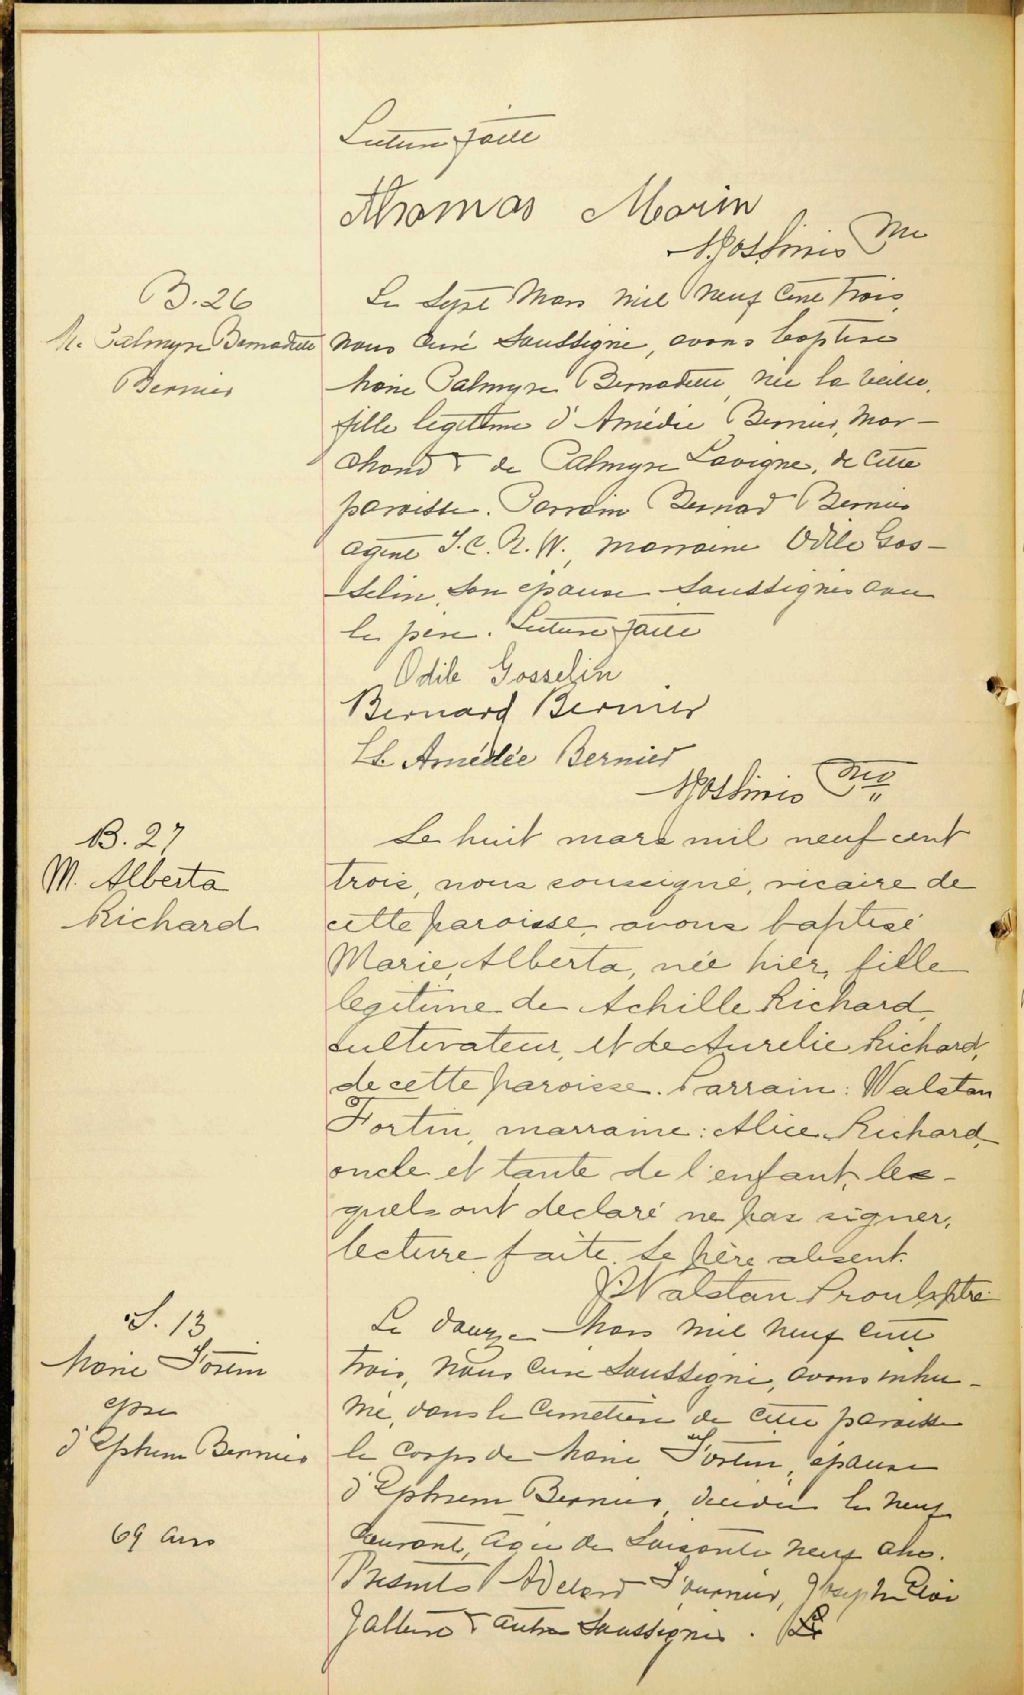 Lecture faite
Thomas Morin
B. 26
M. Palmyre Bernadette
Bernier
Le sept Mars mil neuf cent trois,
nous curé soussigné, avons baptisé
Marie Palmyre Bernadette, née la veille,
fille légitime d'Amédée Bernier, mar-
chand & de Palmyre Lavigne, de cette
paroisse. Parrain Bernard Bernier
agent I.C.R.W., marraine Odile Gos-
selin, son épouse soussignés avec
le père. Lecture faite
Odile Gosselin
Bernard Bernier
Amédée Bernier
B. 27
M. Alberta
Richard
Le huit mars mil neuf cent
trois, nous soussigné, vicaire de
cette paroisse avons baptisé
Marie, Alberta, née hier, fille
legitime de Achille Richard,
cultivateur, et de Aurelie Richard,
de cette paroisse. Parrain: Walstan
Fortin, marraine: Alice Richard,
oncle et tante de l'enfant, les-
quels ont declaré ne pas signer,
lecture faite. Le père absent.
J. Walstan Proulx ptre
S. 13
Marie Fortin
épse
d'Ephrem Bernier
69 ans
Le douze Mars mil neuf cent
trois, nous curé soussigné, avons inhu-
mé, dans le cimetière de cette paroisse
le corps de Marie Fortin, épouse
d'Ephrem Bernier, décédée le neuf
courant, agée de soixante neuf ans.
Présents Adelard Fournier, Joseph Eloi
Jalbert & autres soussignés.